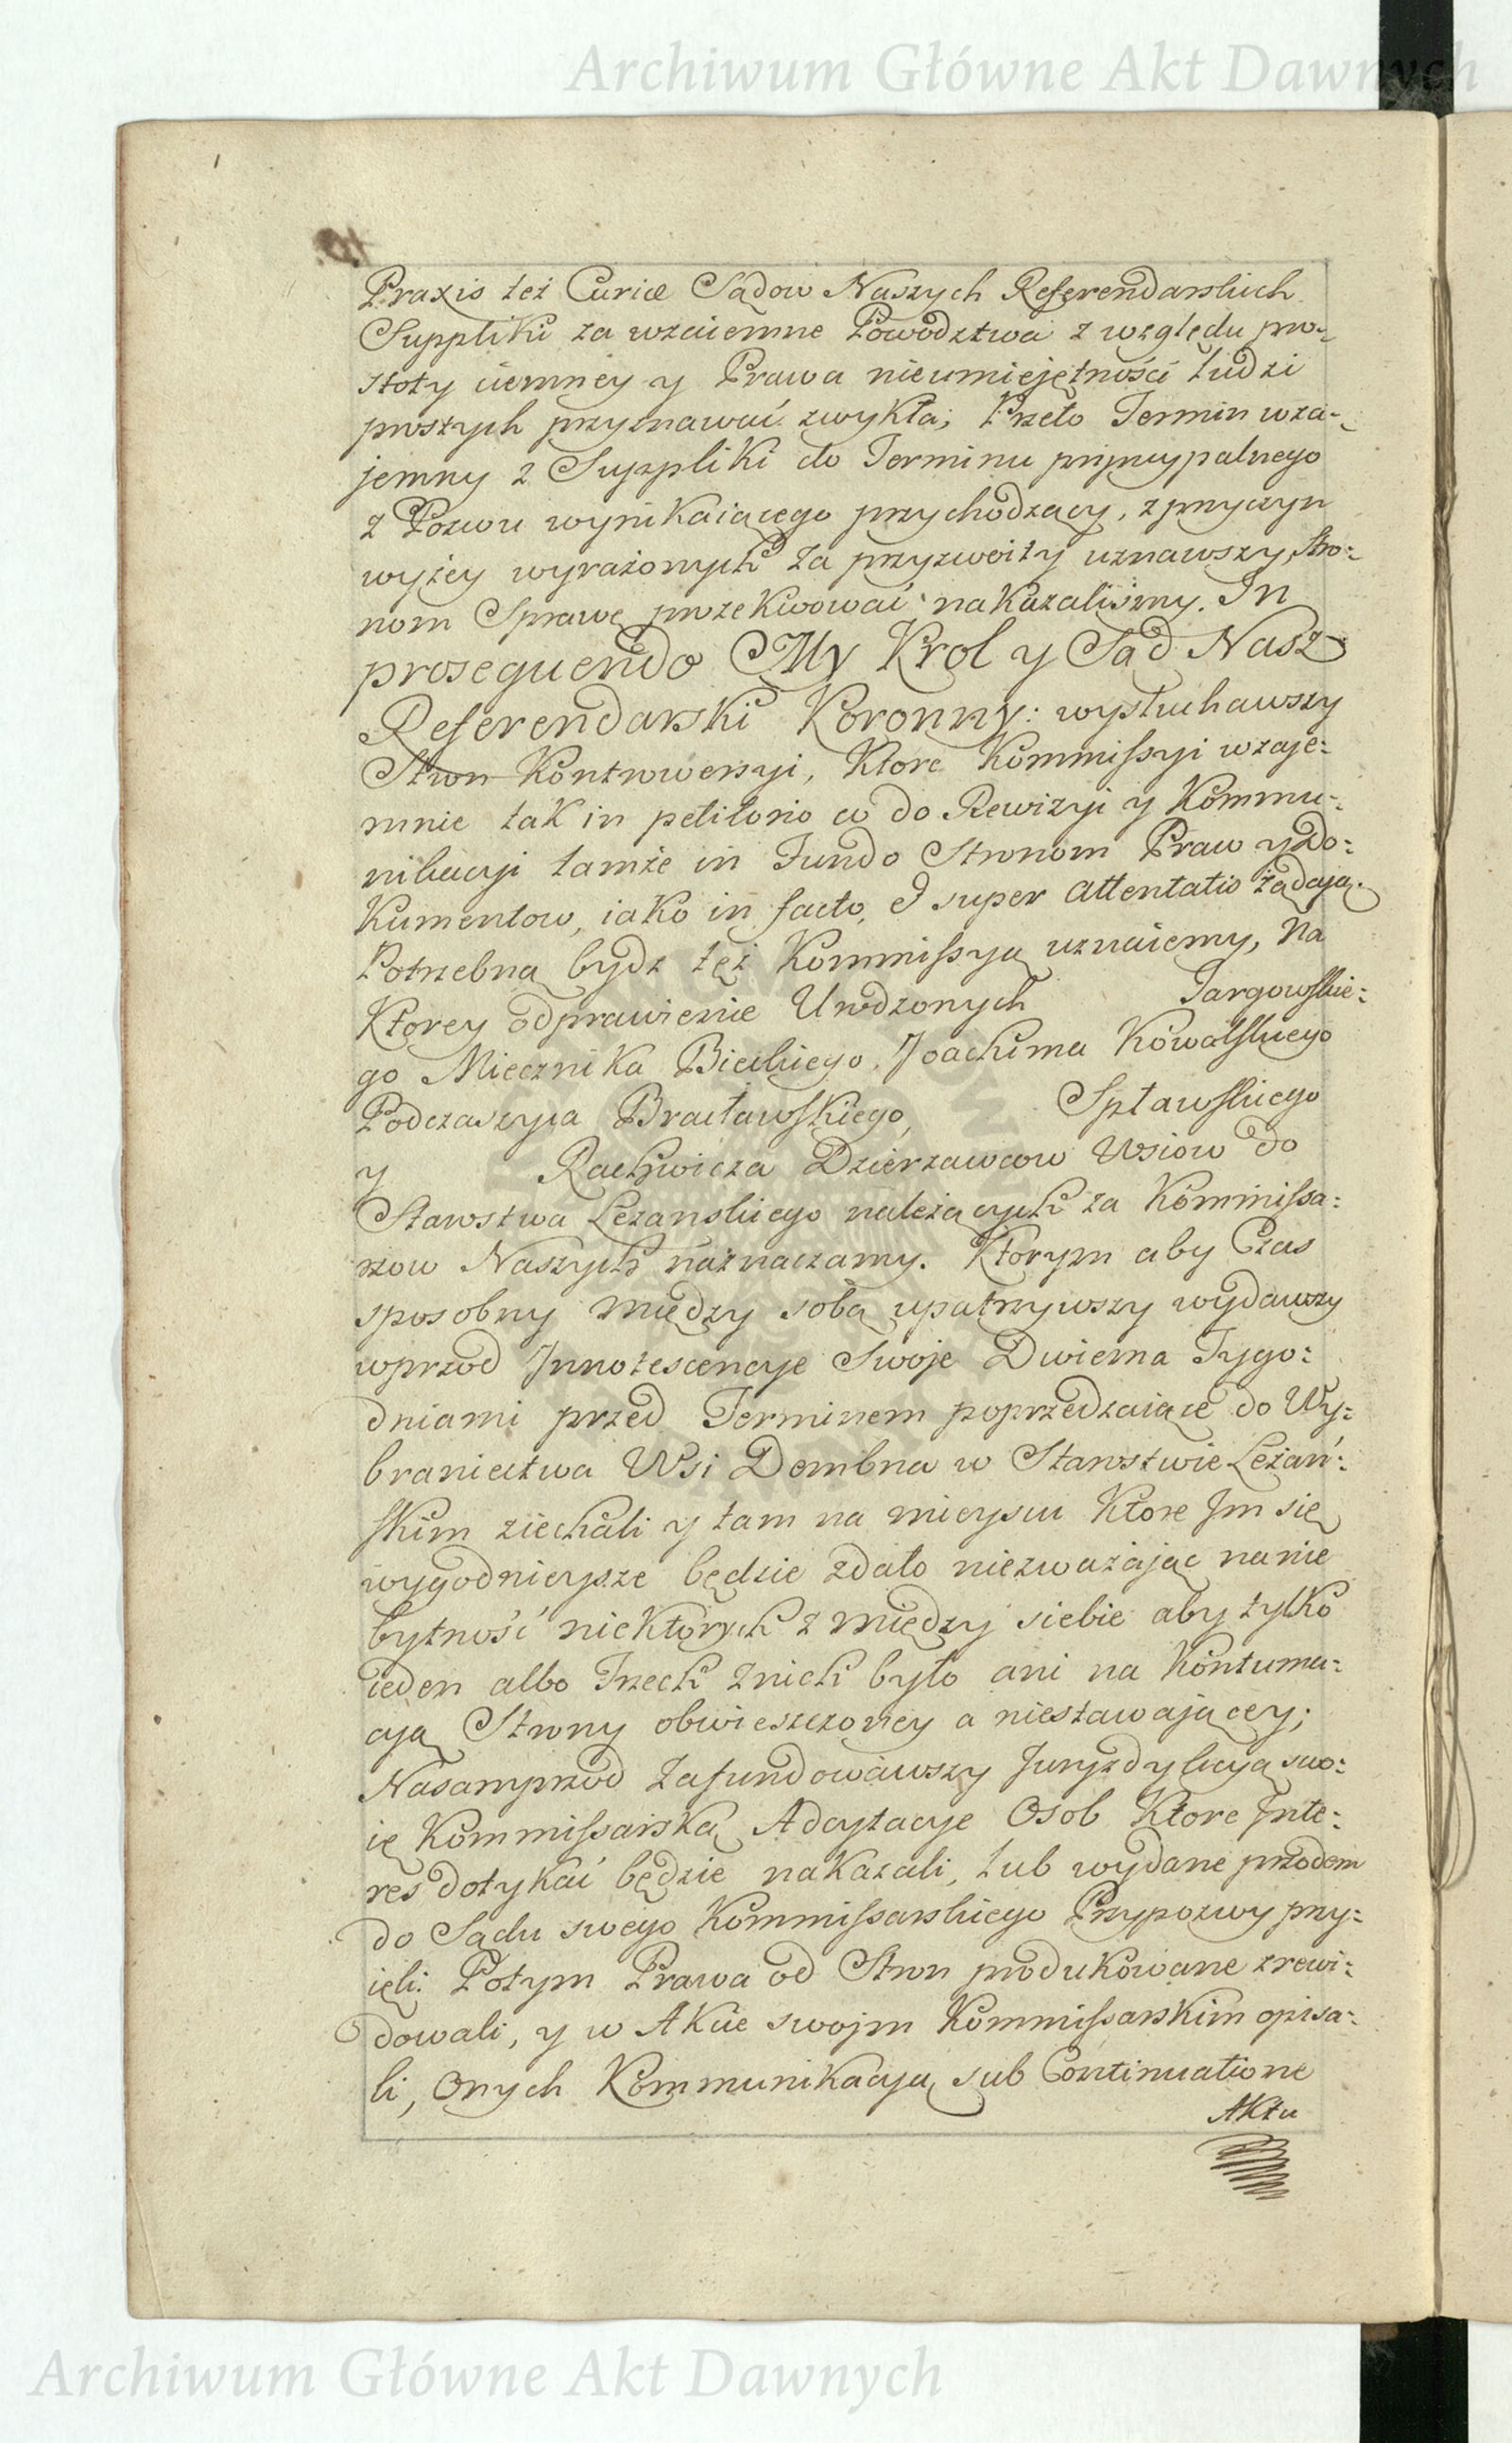 Archiwum Główne Akt Dawnych
Praxis też Curiæ Sądow Naszych Referendarskich
Suppliki za wzaiemne Powodztwa z względu pro-
stoty ciemney y Prawa nieumiejętności ludzi
prostych przyznawać zwykła; Przeto Termin wza-
jemny z Suppliki do Terminu pryncypalnego
z Pozwu wynikaiącego przychodzący, z przyczyn
wyżey wyrażonych za przyzwoity uznawszy, Stro:
nom Sprawę prozekwować nakazaliśmy. In
prosequendo My Krol y Sąd Nasz
Referendarski Koronny: wysłuchawszy
Stron Kontrowersyi, Ktore Kommissyi wzaje:
mnie tak in petitorio co do Rewizyi y Kommu:
nikacyi tamże in Fundo Stronom Praw y Do:
kumentow, iako in facto, & super attentatis żądają.
Potrzebną bydz też Kommissyą uznaiemy, Na
Ktorey odprawienie Urodzonych Targowskie:
go Miecznika Bieckiego, Joachima Kowalskiego
Podczaszyca Bracławskiego, Spławskiego
y Rachwicza Dzierzawcow Wsiow do
Starostwa Leżanskiego należących za Kommissa:
rzow Naszych naznaczamy. Ktorym aby Czas
sposobny między sobą upatrzywszy wydawszy
wprzod Innotescencye Swoje Dwiema Tygo:
dniami przed Terminem poprzedzaiące do Wy:
braniectwa Wsi Dembna w Starostwie Leżań:
skim ziechali y tam na mieyscu Ktore Im się
wygodnieysze będzie zdało niezważając na nie
bytność niektorych z między siebie aby tylko
ieden albo Trzech z nich było ani na Kontuma:
cyą Strony obwieszczoney a niestawającey;
Nasamprzod zafundowawszy Juryzdykcyą swo:
ię Kommissarską Adcytacye Osob Ktore Inte:
res dotykać będzie nakazali, lub wydane przodem
do Sądu swego Kommissarskiego Przypozwy przy:
ięli: Potym Prawa od Stron produkowane zrewi:
dowali, y w Akcie swojm Kommissarskim opisa:
li, Onych Kommunikacyą sub Continuatione
Aktu
Archiwum Główne Akt Dawnych